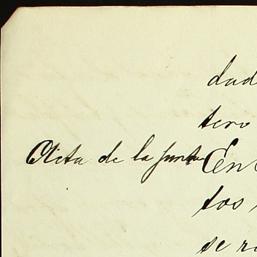 dad
tero
Acta de la Junta En
tos
se r